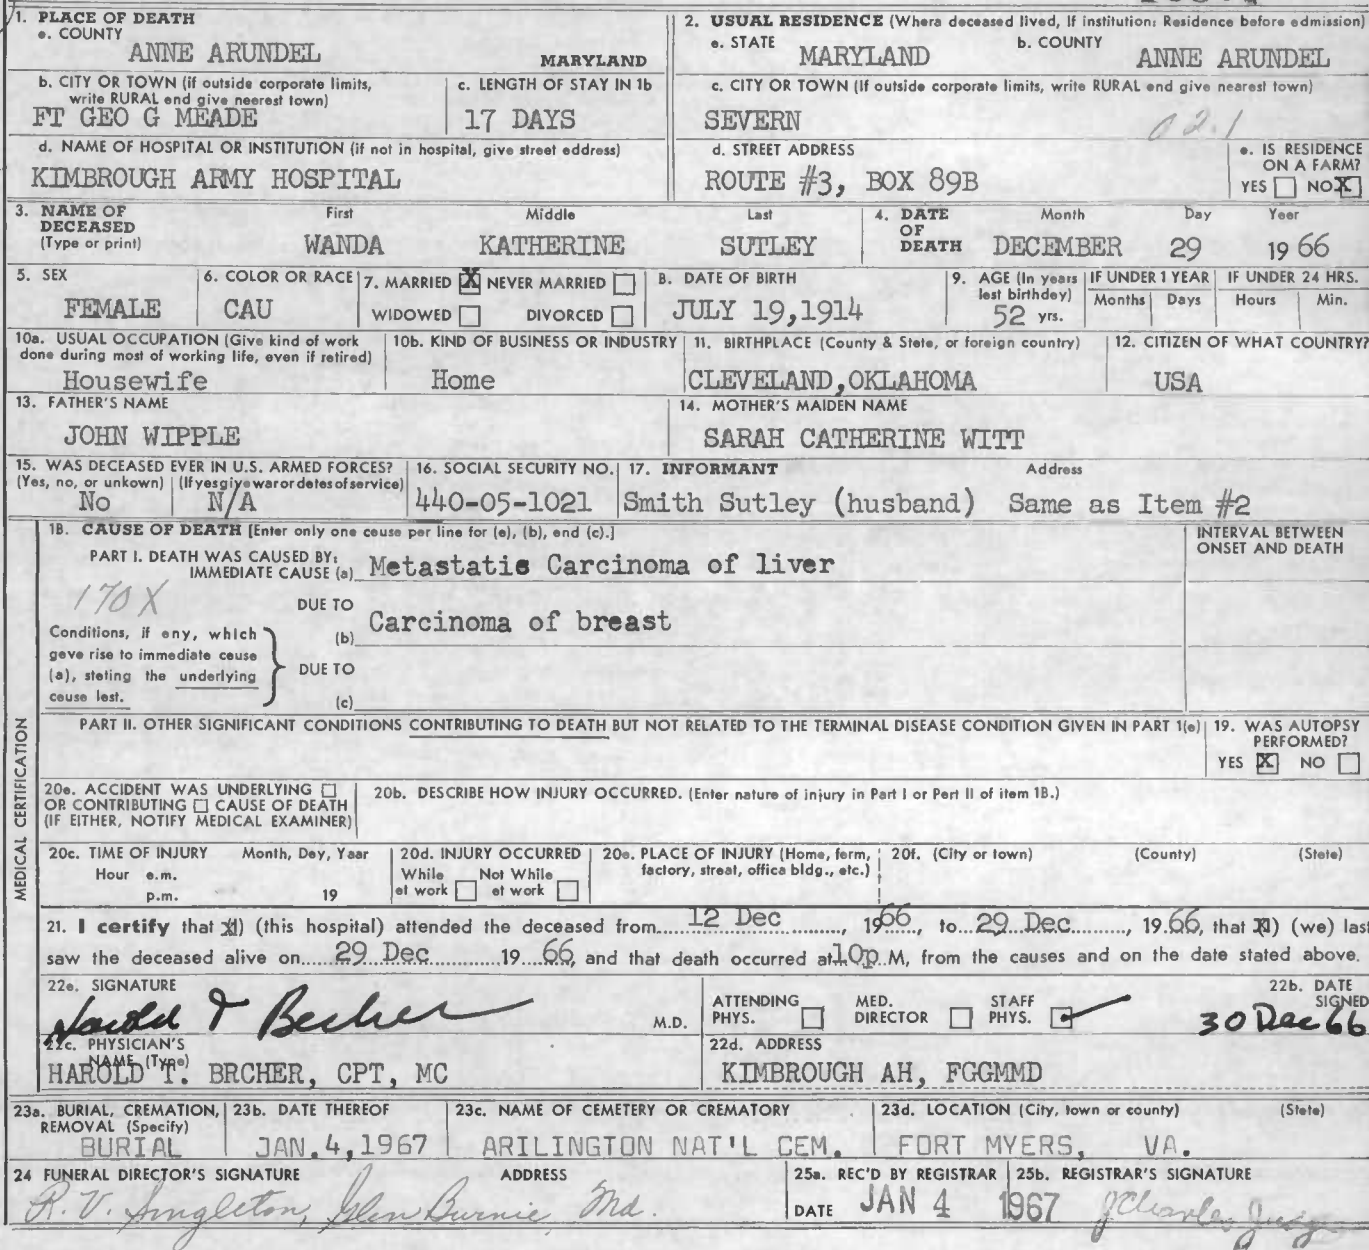 1. PLACE OF DEATH
a. COUNTY
ANNE ARUNDEL MARYLAND
2. USUAL RESIDENCE (Where deceased lived, If institution: Residence before admission)
a. STATE MARYLAND b. COUNTY ANNE ARUNDEL
b. CITY OR TOWN (if outside corporate limits, write RURAL and give nearest town)
FT GEO G MEADE
c. LENGTH OF STAY IN 1b
17 DAYS
c. CITY OR TOWN (If outside corporate limits, write RURAL and give nearest town)
SEVERN
02.1
d. NAME OF HOSPITAL OR INSTITUTION (if not in hospital, give street address)
KIMBROUGH ARMY HOSPITAL
d. STREET ADDRESS
ROUTE #3, BOX 89B
e. IS RESIDENCE ON A FARM?
YES NO X
3. NAME OF DECEASED (Type or print)
First Middle Last
WANDA KATHERINE SUTLEY
4. DATE OF DEATH
Month Day Year
DECEMBER 29 19 66
5. SEX
FEMALE
6. COLOR OR RACE
CAU
7. MARRIED X NEVER MARRIED
WIDOWED DIVORCED
8. DATE OF BIRTH
JULY 19,1914
9. AGE (In years last birthday)
52 yrs.
IF UNDER 1 YEAR
Months Days
IF UNDER 24 HRS.
Hours Min.
10a. USUAL OCCUPATION (Give kind of work done during most of working life, even if retired)
Housewife
10b. KIND OF BUSINESS OR INDUSTRY
Home
11. BIRTHPLACE (County & State, or foreign country)
CLEVELAND,OKLAHOMA
12. CITIZEN OF WHAT COUNTRY?
USA
13. FATHER'S NAME
JOHN WIPPLE
14. MOTHER'S MAIDEN NAME
SARAH CATHERINE WITT
15. WAS DECEASED EVER IN U.S. ARMED FORCES?
(Yes, no, or unkown) (If yes give war or dates of service)
No N/A
16. SOCIAL SECURITY NO.
440-05-1021
17. INFORMANT Address
Smith Sutley (husband) Same as Item #2
MEDICAL CERTIFICATION
18. CAUSE OF DEATH [Enter only one cause per line for (a), (b), and (c).]
INTERVAL BETWEEN ONSET AND DEATH
PART I. DEATH WAS CAUSED BY:
IMMEDIATE CAUSE (a) Metastatic Carcinoma of liver
170X
DUE TO
(b) Carcinoma of breast
Conditions, if any, which gave rise to immediate cause (a), stating the underlying cause last.
DUE TO
(c)
PART II. OTHER SIGNIFICANT CONDITIONS CONTRIBUTING TO DEATH BUT NOT RELATED TO THE TERMINAL DISEASE CONDITION GIVEN IN PART 1(a)
19. WAS AUTOPSY PERFORMED?
YES X NO
20a. ACCIDENT WAS UNDERLYING
OR CONTRIBUTING CAUSE OF DEATH
(IF EITHER, NOTIFY MEDICAL EXAMINER)
20b. DESCRIBE HOW INJURY OCCURRED. (Enter nature of injury in Part I or Part II of item 18.)
20c. TIME OF INJURY Month, Day, Year
Hour a.m.
p.m. 19
20d. INJURY OCCURRED
While at work Not While at work
20e. PLACE OF INJURY (Home, farm, factory, street, office bldg., etc.)
20f. (City or town) (County) (State)
21. I certify that XI) (this hospital) attended the deceased from 12 Dec, 1966, to 29 Dec, 19 66, that XI) (we) last
saw the deceased alive on 29 Dec 19 66, and that death occurred at 10p M, from the causes and on the date stated above.
22a. SIGNATURE
Harold T Becher M.D.
ATTENDING PHYS. MED. DIRECTOR STAFF PHYS.
22b. DATE SIGNED
30 Dec 66
22c. PHYSICIAN'S NAME (Type)
HAROLD T. BRCHER, CPT, MC
22d. ADDRESS
KIMBROUGH AH, FGGMMD
23a. BURIAL, CREMATION, REMOVAL (Specify)
BURIAL
23b. DATE THEREOF
JAN.4,1967
23c. NAME OF CEMETERY OR CREMATORY
ARILINGTON NAT'L CEM.
23d. LOCATION (City, town or county) (State)
FORT MYERS, VA.
24 FUNERAL DIRECTOR'S SIGNATURE ADDRESS
R. V. Singleton, Glen Burnie, Md.
25a. REC'D BY REGISTRAR
DATE JAN 4 1967
25b. REGISTRAR'S SIGNATURE
J Charles Judge